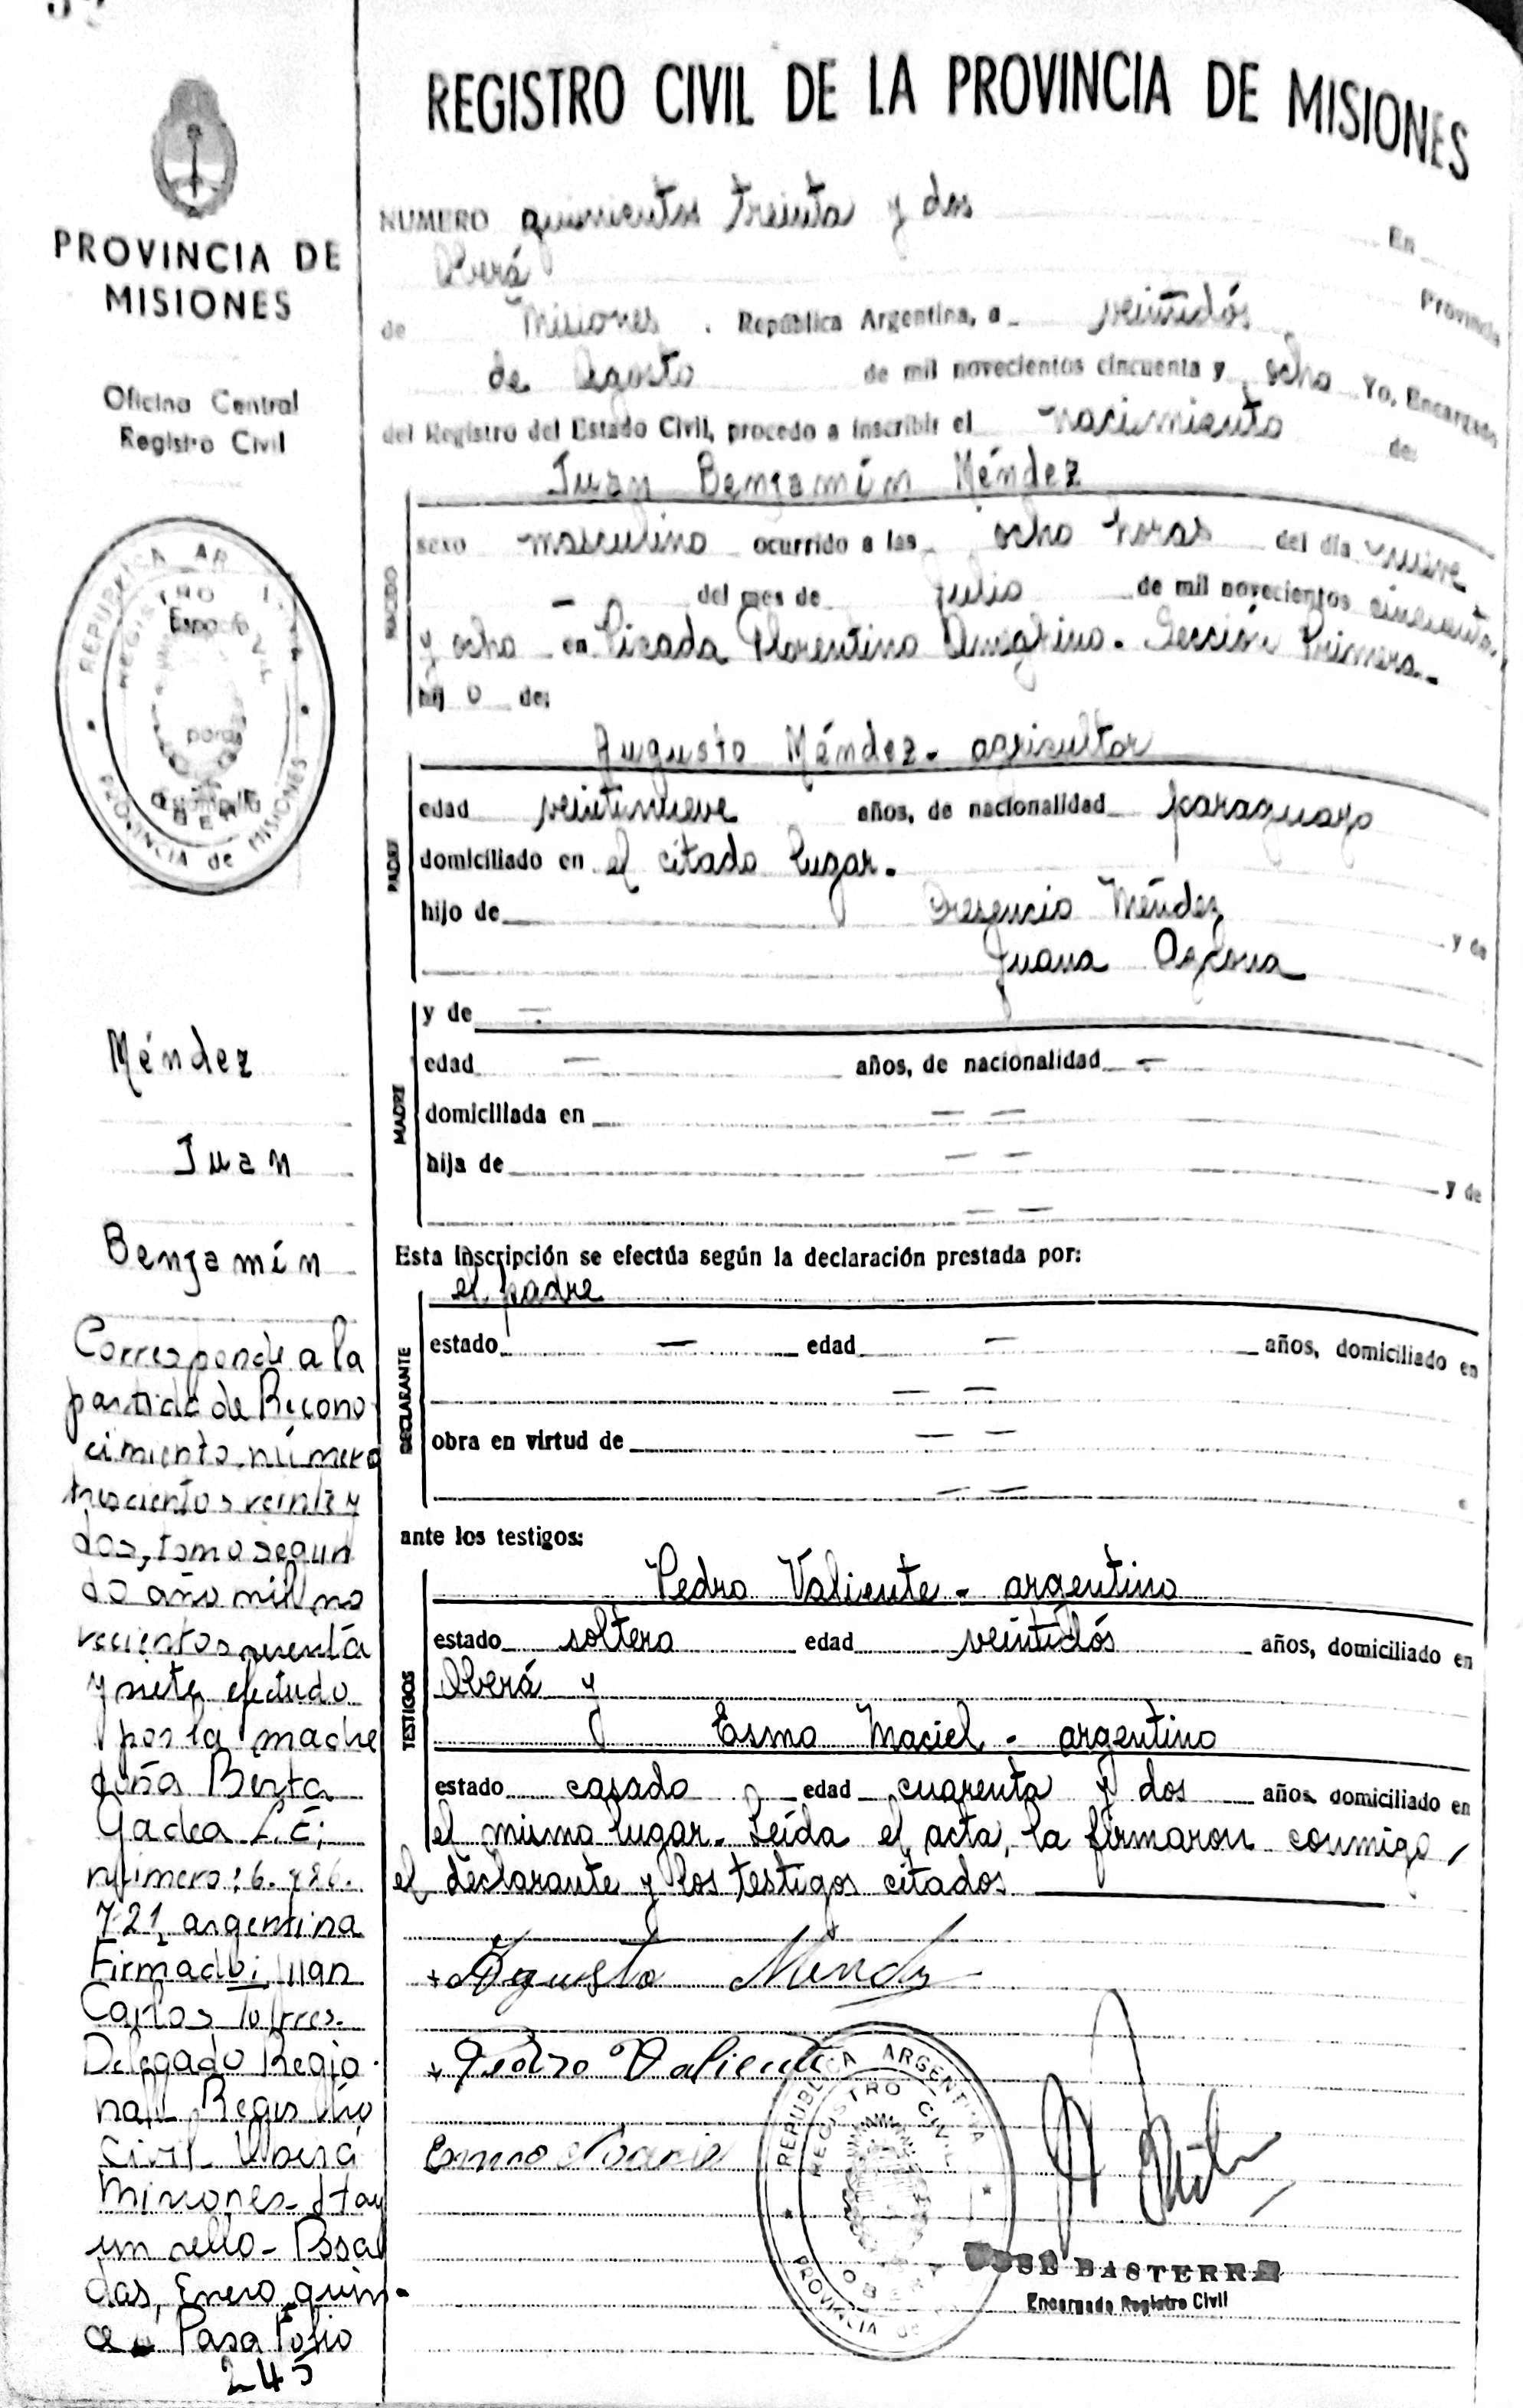 REGISTRO CIVIL DE LA PROVINCIA DE MISIONES
PROVINCIA DE
MISIONES
Oficina Central
Registro Civil
REPUBLICA ARGENTINA
REGISTRO CIVIL
Espacio
para
OBERA
PROVINCIA de MISIONES
Méndez
Juan
Benjamín
Corresponde a la
partida de Recono
cimiento número
trescientos veinte y
dos, tomo segun
do año mil no
vecientos
y siete efectudo
por la madre
doña Berta
Gadea L.C:
número: 6.726.
721, argentina
Firmado: Juan
Carlos Torres.
Delegado Regio
nal Registro
Civil Oberá
Misiones- Hay
un sello- Posa
das, Enero quin
ce Pasa Folio
245
NUMERO quinientos treinta y dos En
Oberá Provincia
de Misiones . República Argentina, a veintidós
de Agosto de mil novecientos cincuenta y ocho Yo, Encargado
del Registro del Estado Civil, procedo a inscribir el nacimiento de:
Juan Benjamín Méndez
NACIDO
sexo masculino ocurrido a las ocho horas del dia nueve
— del mes de Julio de mil novecientos cincuenta
y ocho en Picada Florentino Ameghino. Sección Primera.-
hij o de:
Augusto Méndez- agricultor
PADRE
edad veintinueve años, de nacionalidad paraguayo
domiciliado en el citado lugar.
hijo de Méndez y de
Juana
MADRE
y de —
edad — años, de nacionalidad —
domiciliada en — —
hija de — — y de
— —
Esta inscripción se efectúa según la declaración prestada por:
el padre
DECLARANTE
estado — edad — años, domiciliado en
— —
obra en virtud de — —
— —
ante los testigos:
Pedro Valiente - argentino
TESTIGOS
estado soltero edad veintidós años, domiciliado en
Oberá y
Maciel - argentino
estado casado edad cuarenta y dos años domiciliado en
el mismo lugar. Leída el acta, la firmaron conmigo,
el declarante y los testigos citados
Agusto Mendez
Pedro Valiente
REPUBLICA ARGENTINA
REGISTRO CIVIL
OBERA
PROVINCIA DE
JOSE BASTERRA
Encargado Registro Civil